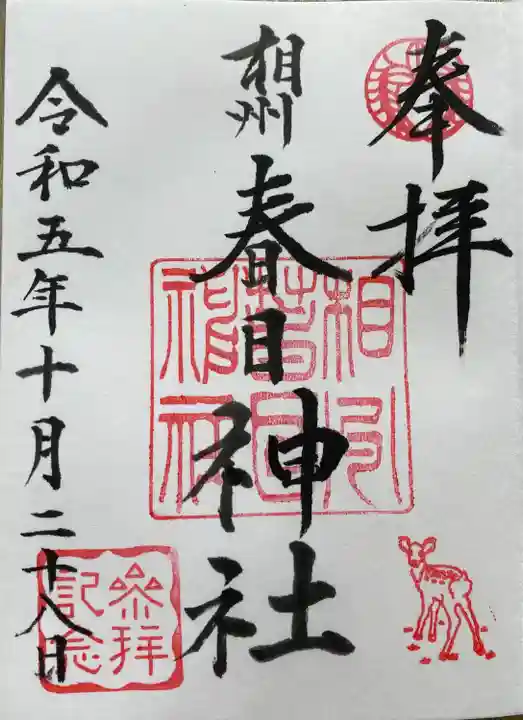 奉拝
相州
春日神社
相州
春日
神社
令和五年十月二十八日
参拝
記念